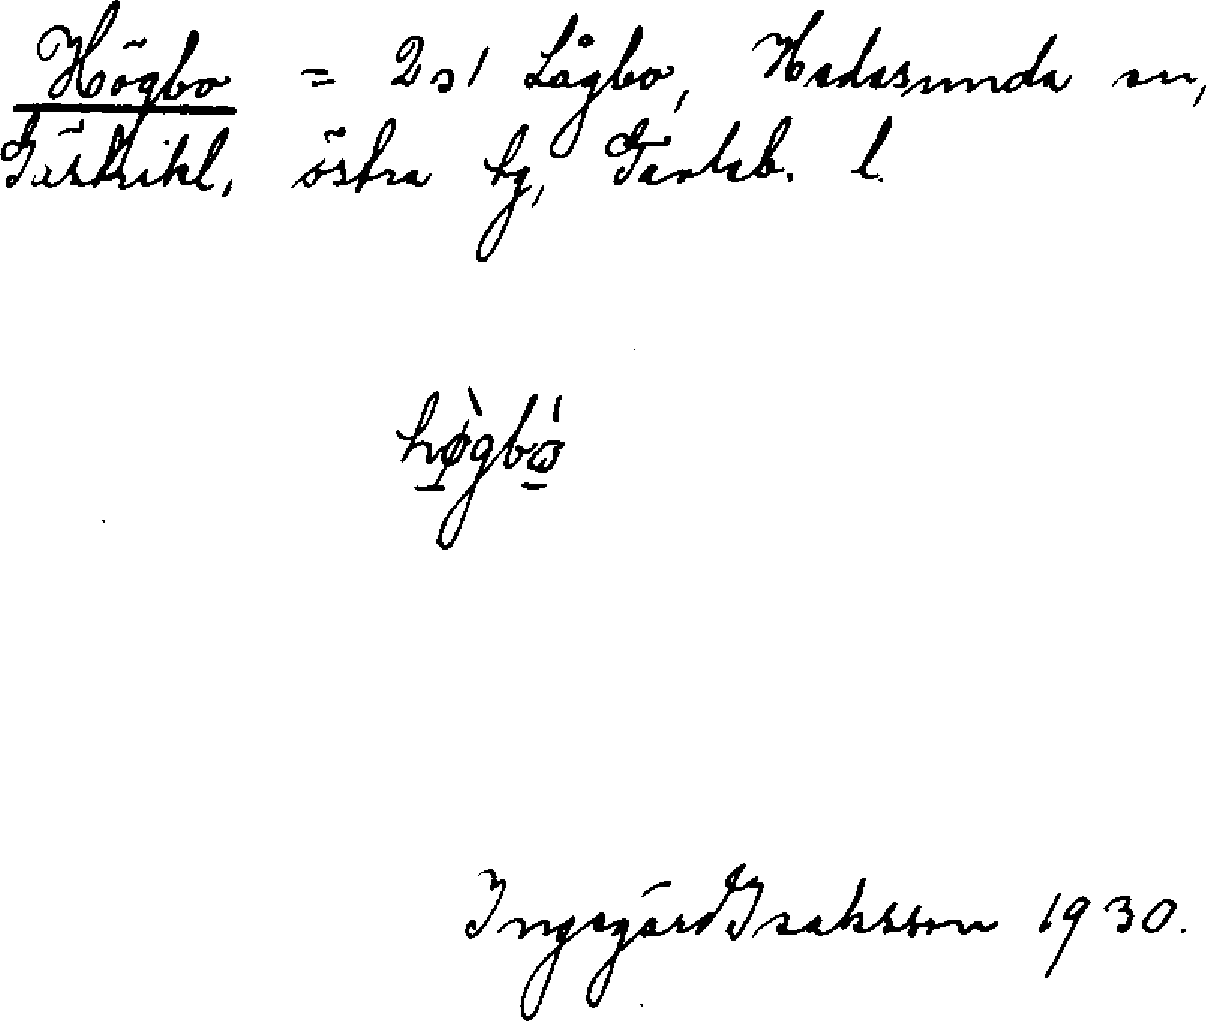 Högbo = 2 a 1 Lågbo, Hedesunda sn,
Gästrikl, östra tg, Gävleb. l.
hø̀gbó
Ingegärd Isaksson 1930.